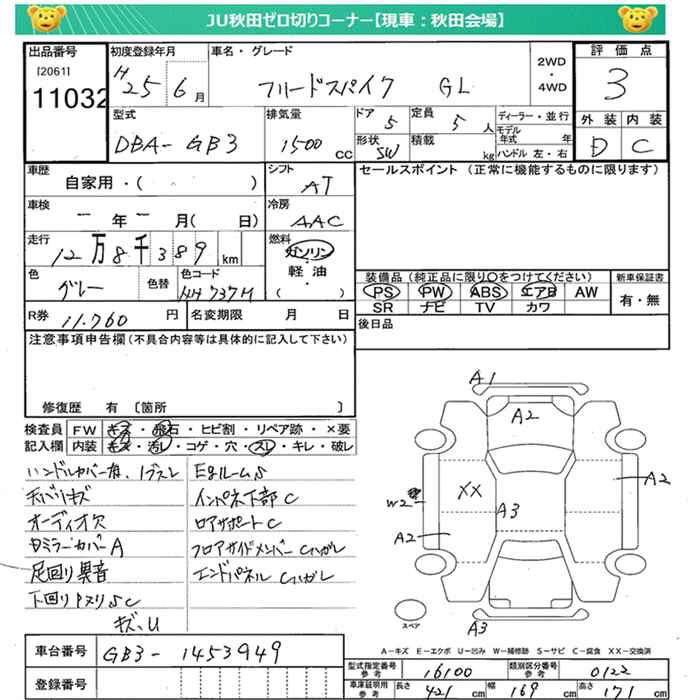 JU秋田ゼロ切りコーナー【現車：秋田会場】
出品番号
[2061]
11032
初度登録年月
H25 6月
車名・グレード
フリードスパイク GL
2WD
・
4WD
評価点
3
外装 内装
D C
型式
DBA-GB3
排気量
1500 cc
ドア
5
形状
SW
定員
5 人
積載
kg
ディーラー・並行
モデル年式 年
ハンドル 左・右
車歴
自家用・( )
車検
ー年ー月( 日)
走行
12万8千389 km
色
グレー
色替
色コード
NH737M
R券 11.760 円
名変期限 月 日
シフト
AT
冷房
AAC
燃料
ガソリン
・
軽油
( )
セールスポイント (正常に機能するものに限ります)
装備品 (純正品に限り〇をつけてください)
PS PW ABS エアB AW
SR ナビ TV カワ
新車保証書
有・無
後日品
注意事項申告欄 (不具合内容等は具体的に記入して下さい)
修復歴 有 〔箇所 〕
検査員記入欄
FW キズ・飛石・ヒビ割・リペア跡・×要
内装 キズ・汚レ・コゲ・穴・スレ・キレ・破レ
オーディオ欠
足回り異音
キズ、U
EgルームS
インパネ下部C
ロアサポートC
フロアサイドメンバー Cハガレ
エンドパネル Cハガレ
A1
A2
XX
A3
A2
W2
A2
A3
スペア
A-キズ E-エクボ U-凹み W-補修跡 S-サビ C-腐食 XX-交換済
車台番号
GB3-1453949
登録番号
型式指定番号
参考
16100
類別区分番号
参考
0122
車庫証明用
参考
長さ 421 cm
幅 169 cm
高さ 171 cm